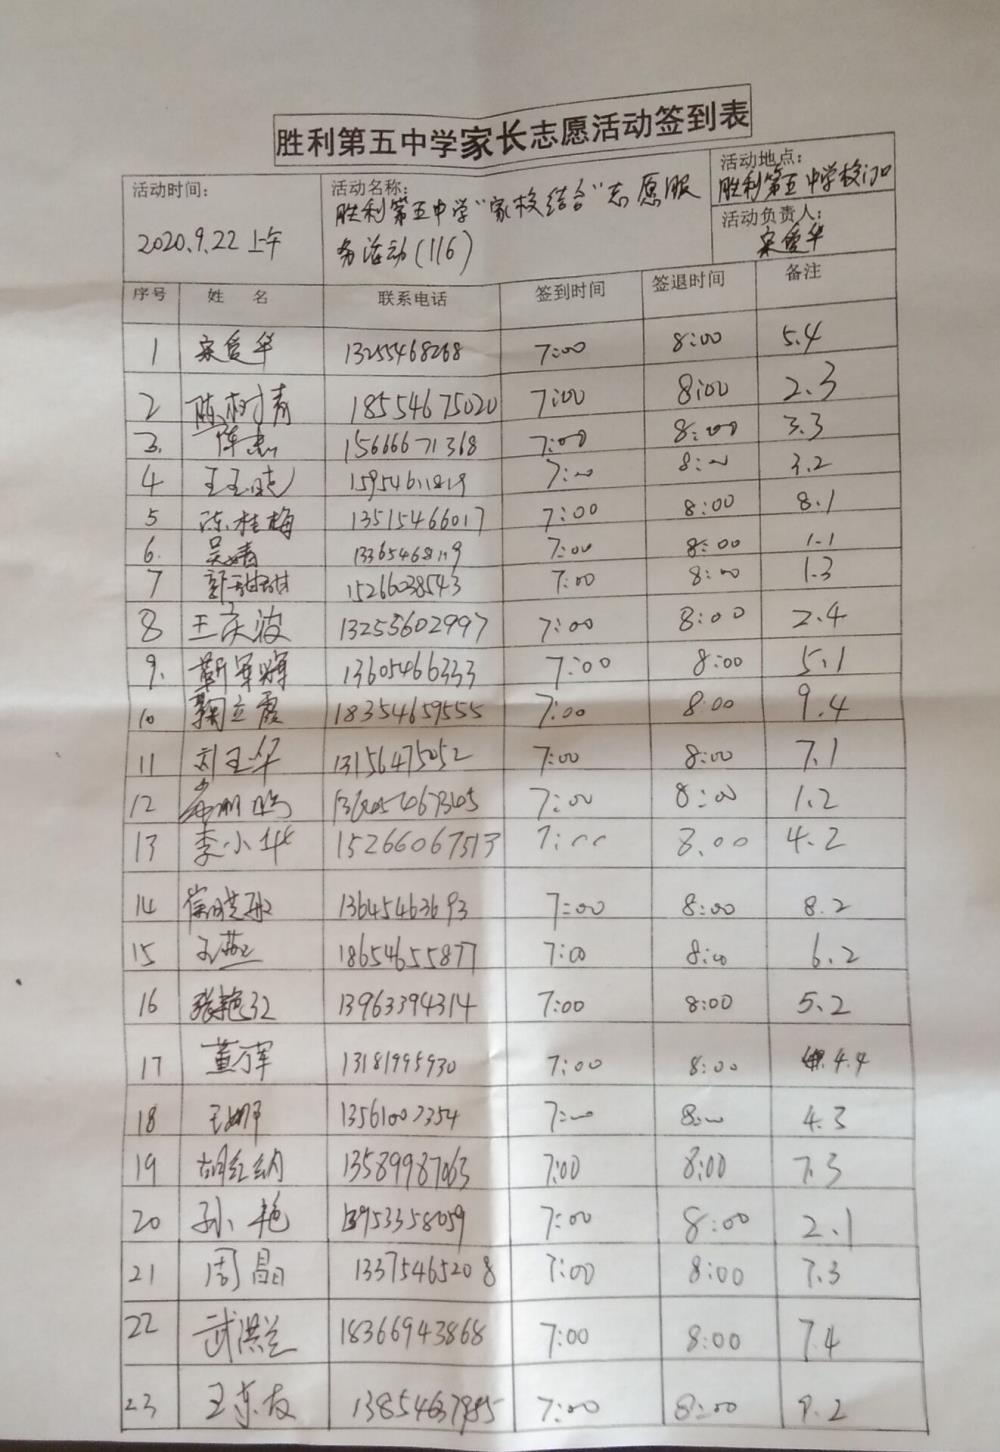 胜利第五中学家长志愿活动签到表
活动时间: 2020.9.22 上午
活动名称: 胜利第五中学“家校结合”志愿服
务活动(116)
活动地点:
胜利第五中学校门口
活动负责人:
宋爱华
序号 姓 名 联系电话 签到时间 签退时间 备注
1 宋爱华 13255468268 7:00 8:00 5.4
2 陈树青 18554675020 7:00 8:00 2.3
3. 陈杰 15666671368 7:00 8:00 3.3
4 王玉晓 7:00 8:00 3.2
5 陈桂梅 13515466017 7:00 8:00 8.1
6. 吴婧 13365468119 7:00 8:00 1.1
7 郭甜甜 15266038543 7:00 8:00 1.3
8 王庆波 13255602997 7:00 8:00 2.4
9. 靳军辉 13605466333 7:00 8:00 5.1
10 鞠立霞 18354659555 7:00 8:00 9.4
11 刘玉华 13156475052 7:00 8:00 7.1
12 7:00 8:00 1.2
13 李小华 15266067513 7:00 8.00 4.2
14 崔晓孙 13645463693 7:00 8:00 8.2
15 王燕 18654655877 7:00 8:00 6.2
16 张艳红 13963394314 7:00 8:00 5.2
17 董军 13181995930 7:00 8:00 4.4
18 王娜 13561007354 7:00 8:00 4.3
19 胡红纳 13589987063 7:00 8:00 7.3
20 孙艳 13953358059 7:00 8:00 2.1
21 周晶 13375465208 7:00 8:00 7.3
22 武洪兰 18366943868 7:00 8:00 7.4
23 王东友 7:00 8:00 9.2